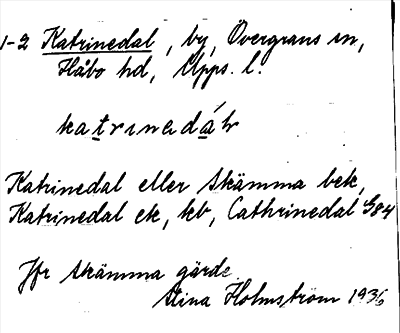 1-2 Katrinedal, by, Övergrans sn,
Håbo hd, Upps. l.
katrinedál
Katrinedal eller Skämma bek,
Katrinedal ek, kb, Cathrinedal G84
Jfr Skämma gärde.
Stina Holmström 1936